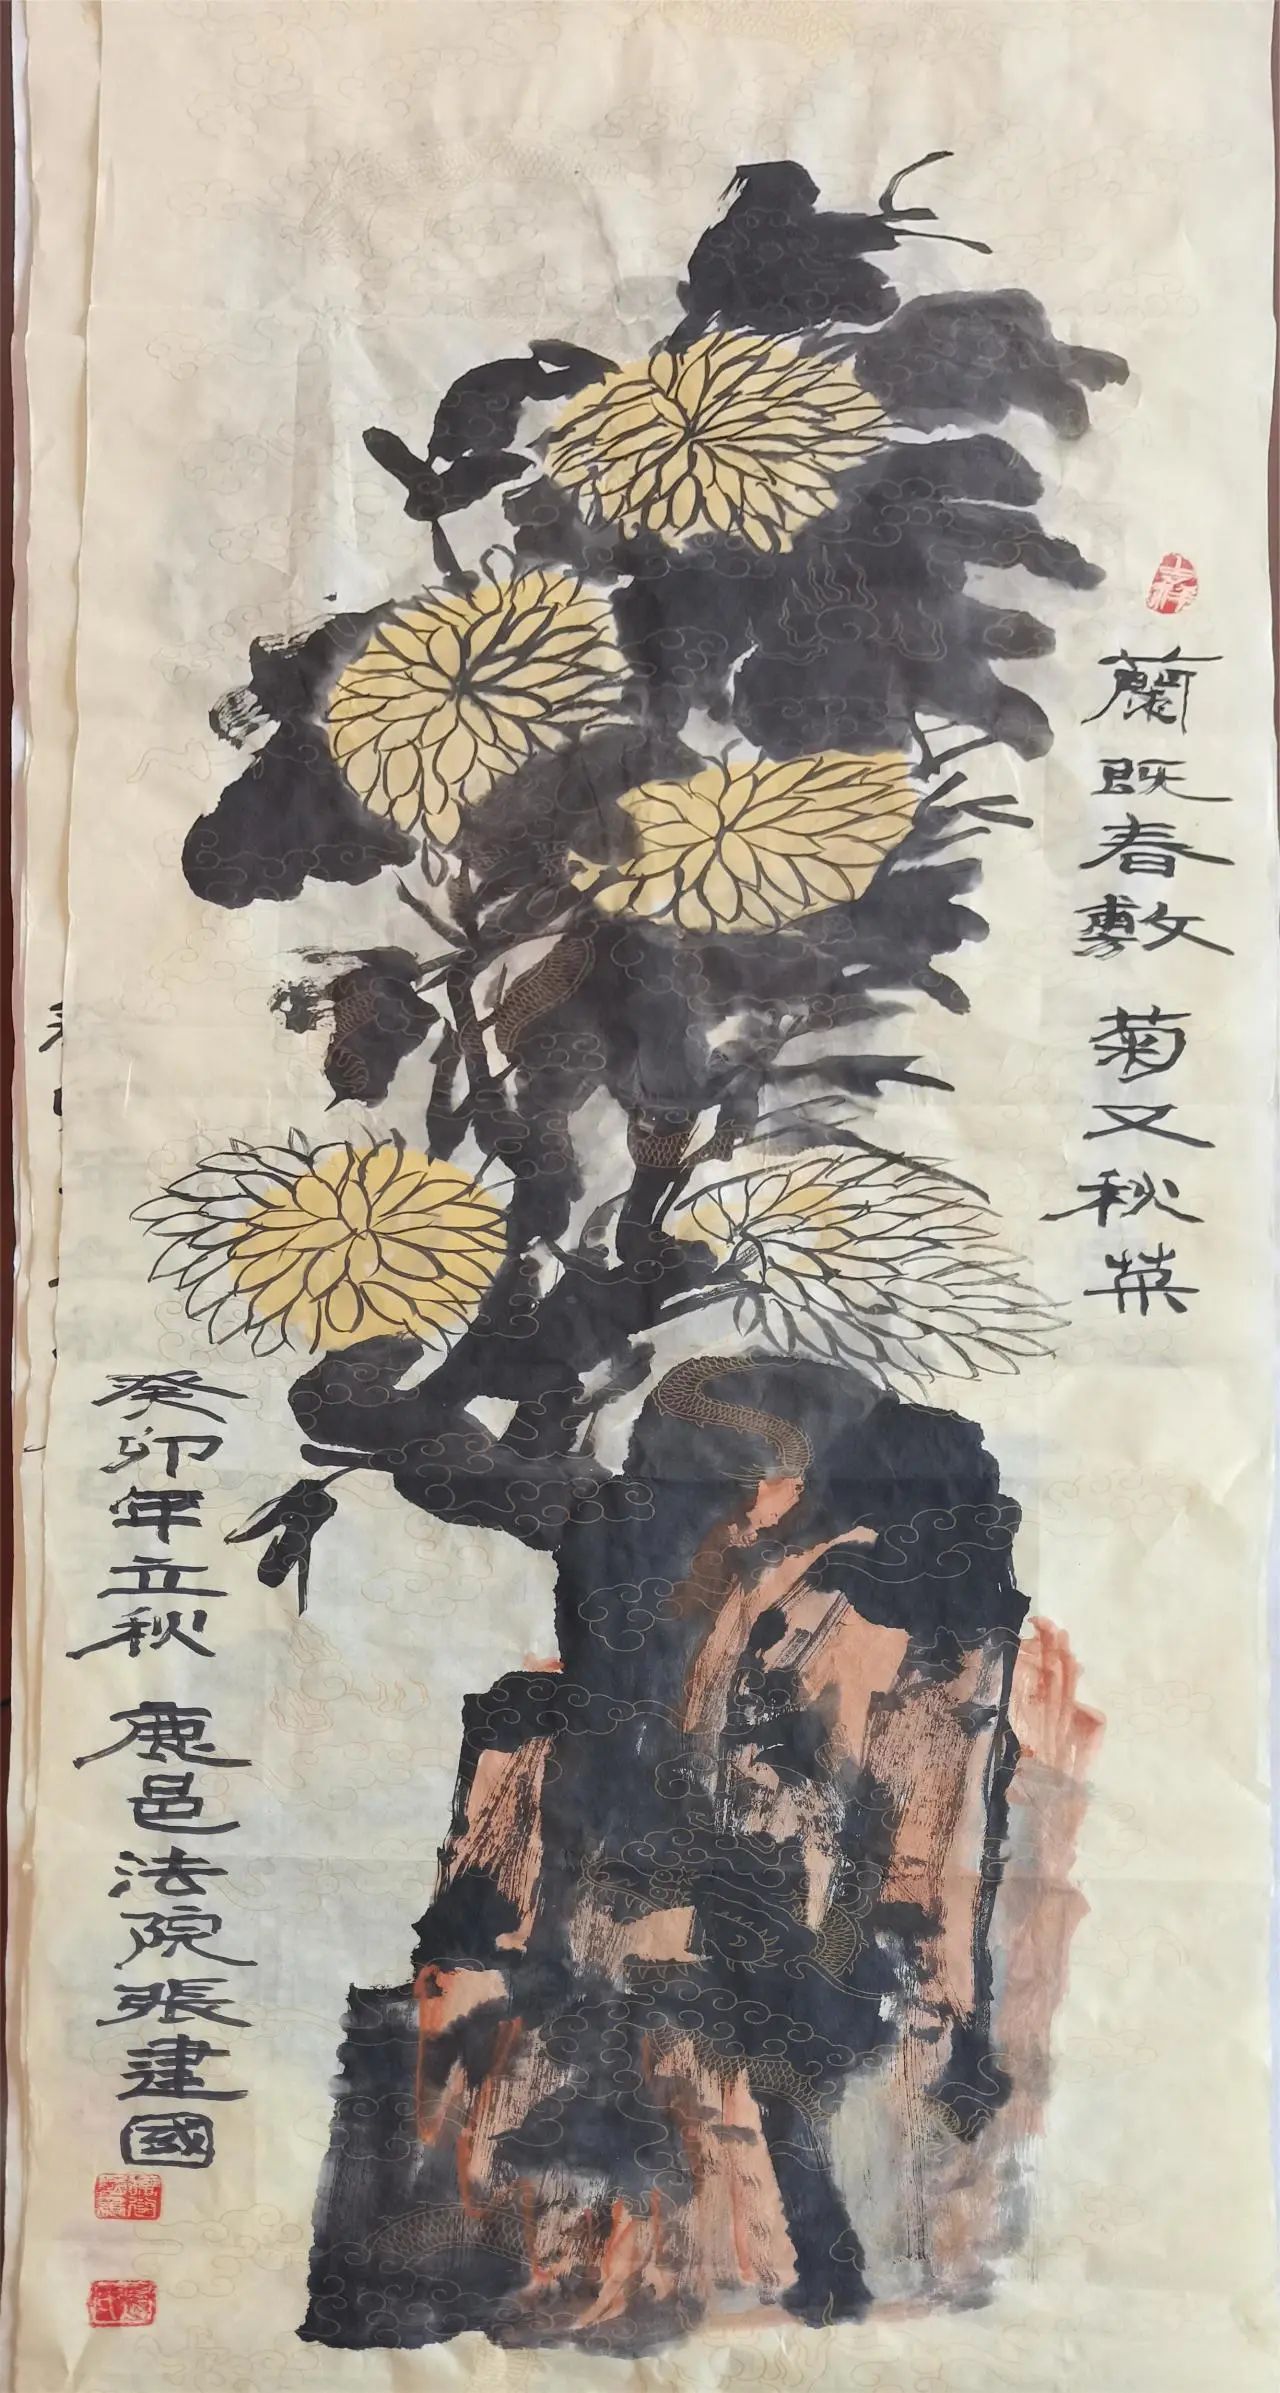 蘭既春敷 菊又秋荣
癸卯年立秋 鹿邑法院張建國